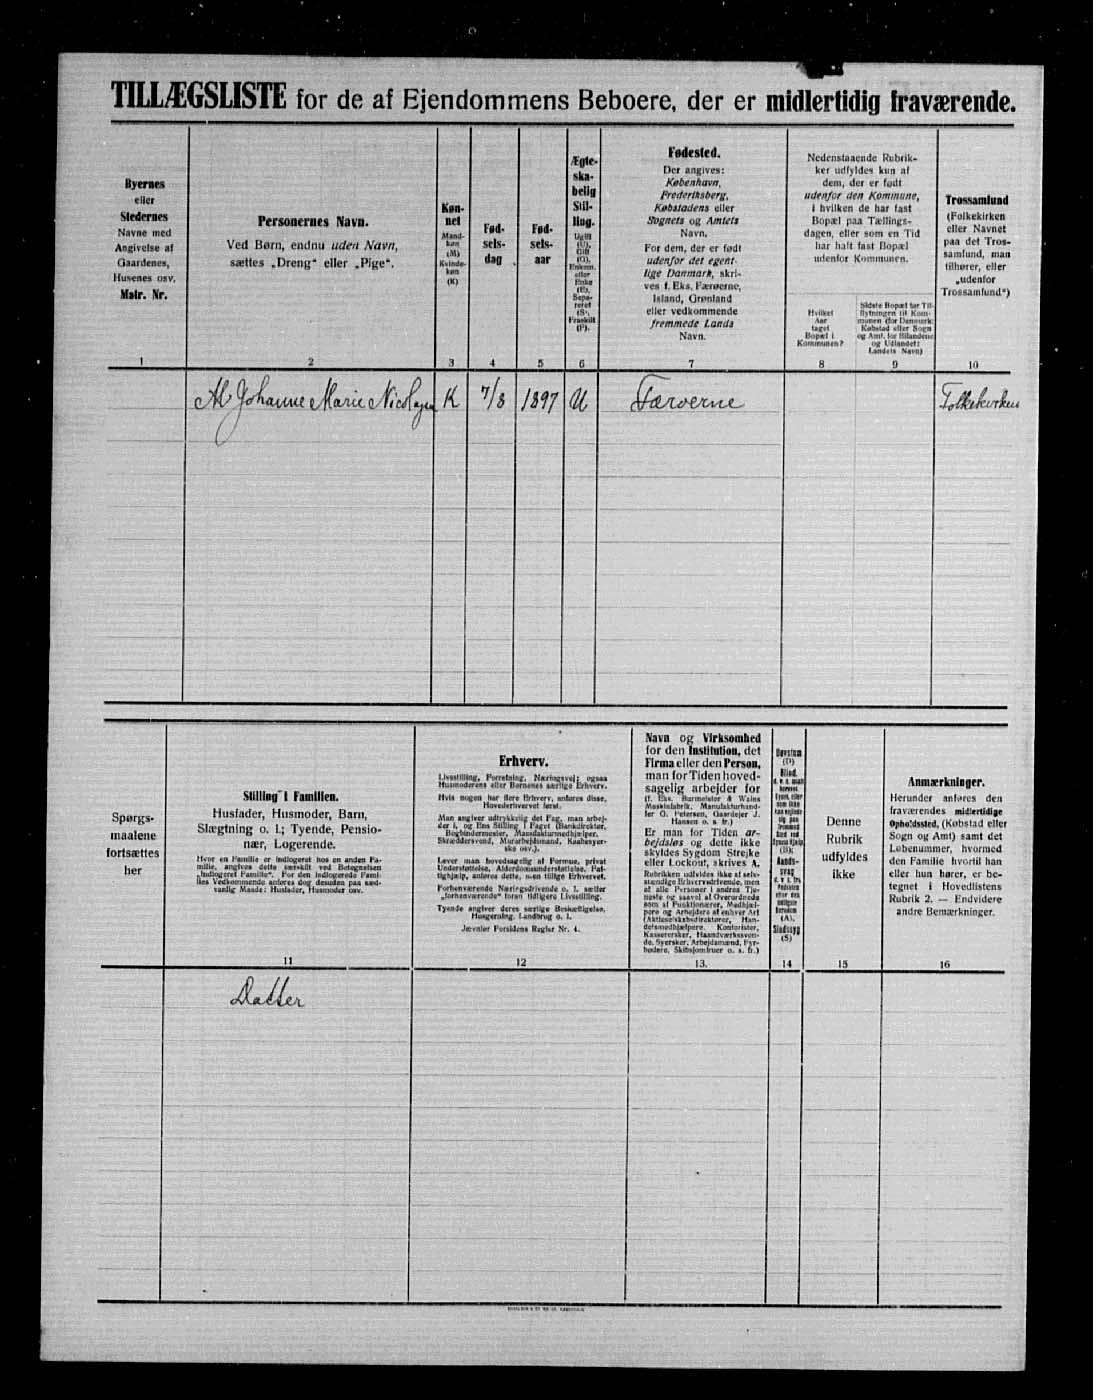 TILLÆGSLISTE for de af Ejendommens Beboere, der er midlertidig fraværende.
Byernes
eller
Stedernes
Navne med
Angivelse af
Gaardenes,
Husenes osv.
Matr. Nr.
1
Personernes Navn.
Ved Børn, endnu uden Navn,
sættes „Dreng“ eller „Pige“.
2
Køn-
net
Mand-
køn
(M)
Kvinde-
køn
(K)
3
Fød-
sels-
dag
4
Fød-
sels-
aar
5
Ægte-
ska-
belig
Stil-
ling.
Ugift
(U),
Gift
(G),
Enkem.
eller
Enke
(E),
Sepa-
reret
(S),
Fraskilt
(F).
6
Fødested.
Der angives:
København,
Frederiksberg,
Købstadens eller
Sognets og Amtets
Navn.
For dem, der er født
udenfor det egent-
lige Danmark, skri-
ves f. Eks. Færøerne,
Island, Grønland
eller vedkommende
fremmede Lands
Navn.
7
Nedenstaaende Rubrik-
ker udfyldes kun af
dem, der er født
udenfor den Kommune,
i hvilken de har fast
Bopæl paa Tællings-
dagen, eller som en Tid
har haft fast Bopæl
udenfor Kommunen.
Hvilket
Aar
taget
Bopæl i
Kommunen?
8
Sidste Bopæl før Til-
flytningen til Kom-
munen (for Danmark:
Købstad eller Sogn
og Amt, for Bilandene
og Udlandet:
Landets Navn)
9
Trossamfund
(Folkekirken
eller Navnet
paa det Tros-
samfund, man
tilhører, eller
„udenfor
Trossamfund“)
10
Johanne Marie Nicolajsen K 7/8 1897 U Færøerne Folkekirken
Spørgs-
maalene
fortsættes
her
Stilling i Familien.
Husfader, Husmoder, Barn,
Slægtning o. l.; Tyende, Pensio-
nær, Logerende.
Hvor en Familie er indlogeret hos en anden Fa-
milie, angives dette særskilt ved Betegnelsen
„Indlogeret Familie“. For den indlogerede Fami-
lies Vedkommende anføres dog desuden paa sæd-
vanlig Maade: Husfader, Husmoder osv.
11
Erhverv.
Livsstilling, Forretning, Næringsvej; ogsaa
Husmoderens eller Børnenes særlige Erhverv.
Hvis nogen har flere Erhverv, anføres disse,
Hovederhvervet først.
Man angiver udtrykkelig det Fag, man arbej-
der i, og Ens Stilling i Faget (Bankdirektør,
Bogbindermester, Manufakturmedhjælper,
Skræddersvend, Murarbejdsmand, Kaabesyer-
ske osv.).
Lever man hovedsagelig af Formue, privat
Understøttelse, Alderdomsunderstøttelse, Fat-
tighjælp, anføres dette, men tillige Erhvervet.
Forhenværende Næringsdrivende o. l. sætter
„forhenværende“ foran tidligere Livsstilling.
Tyende angiver deres særlige Beskæftigelse,
Husgerning, Landbrug o. l.
Jævnfør Forsidens Regler Nr. 4.
12
Navn og Virksomhed
for den Institution, det
Firma eller den Person,
man for Tiden hoved-
sagelig arbejder for
(f. Eks. Burmeister & Wains
Maskinfabrik, Manufakturhand-
ler O. Petersen, Gaardejer J.
Hansen o. s. fr.)
Er man for Tiden ar-
bejdsløs og dette ikke
skyldes Sygdom Strejke
eller Lockout, skrives A.
Rubrikken udfyldes ikke af selv-
stændige Erhvervsdrivende, men
af alle Personer i andres Tje-
neste og saavel af Overordnede
som af Funktionærer, Medhjæl-
pere og Arbejdere af enhver Art
(Aktieselskabsdirektører, Han-
delsmedhjælpere, Kontorister,
Kassererske, Haandværkssven-
de, Syersker, Arbejdsmænd, Fyr-
bødere, Skibsjomfruer o. s. fr.)
13.
Døvstum
(D)
Blind,
14
Denne
Rubrik
udfyldes
ikke
15
Anmærkninger.
Herunder anføres den
fraværendes midlertidige
Opholdssted, (Købstad eller
Sogn og Amt) samt det
Løbenummer, hvormed
den Familie hvortil han
eller hun hører, er be-
tegnet i Hovedlistens
Rubrik 2. — Endvidere
andre Bemærkninger.
16
Datter